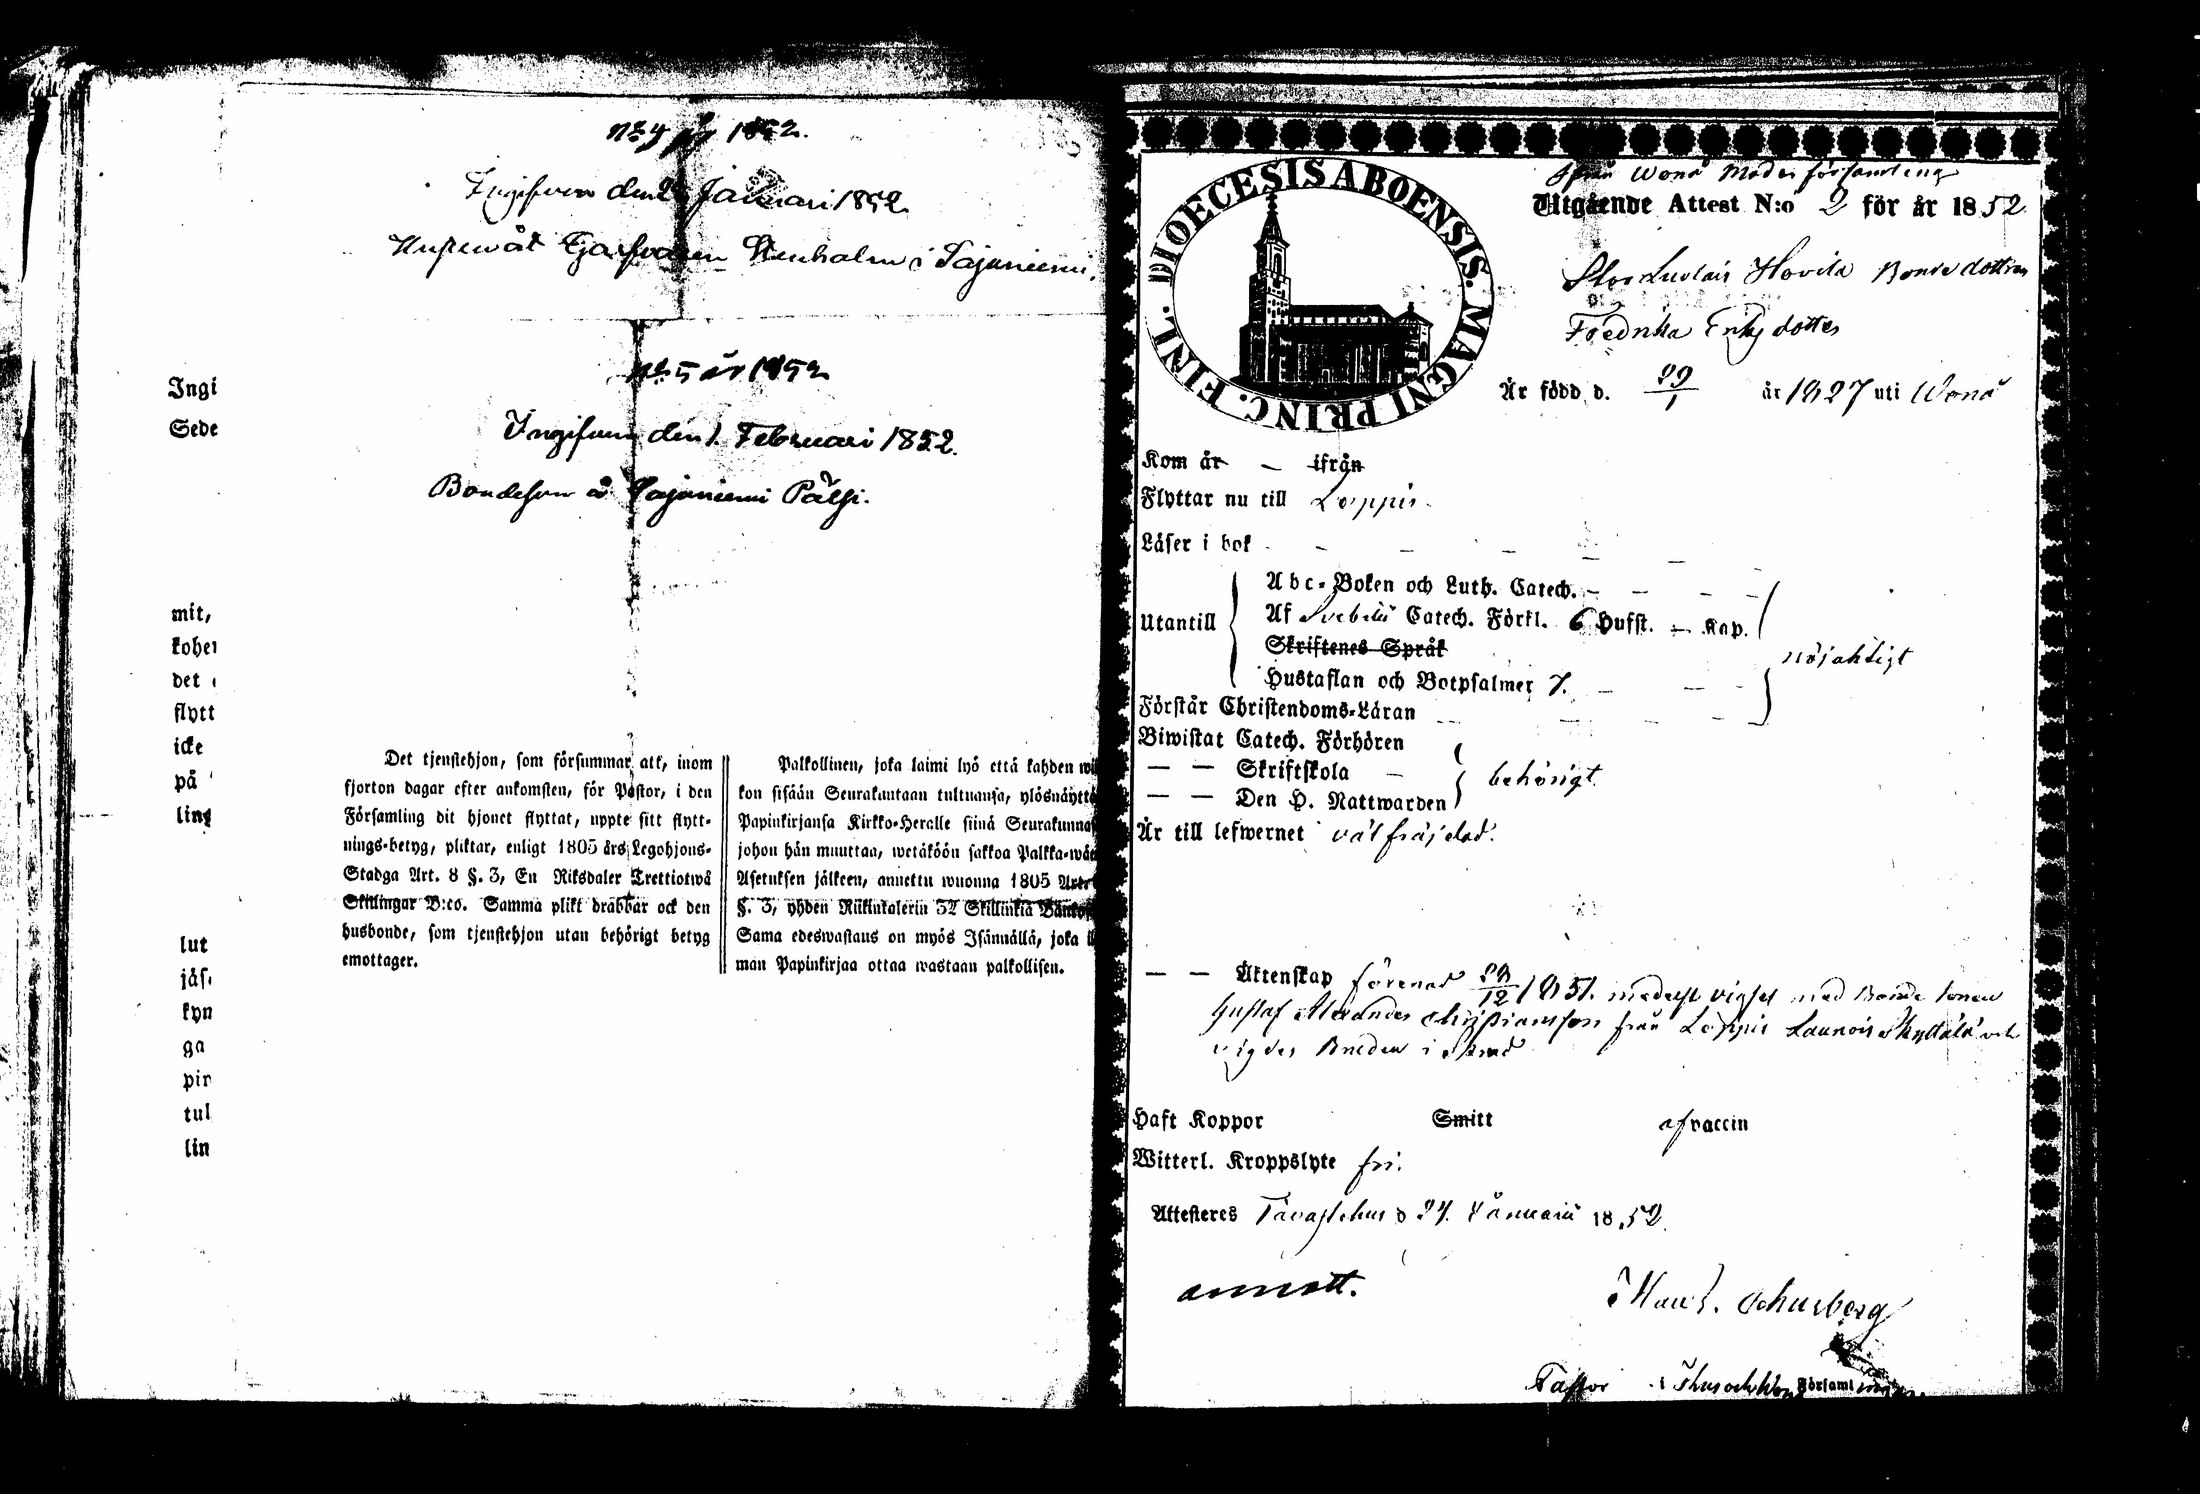 No 4 för 1852.
Ingifven den Januari 1852
Hustru åt i Sajaniemi.
No 5 år 1852
Ingifven den 1. Februari 1852.
Bondeson å Sajaniemi Pälsi.
Ingi
Sede
mit,
kohe
det
flytt
icke
på
ling
lut
jäs
kyn
ga
pir
tul
lin
Det tjenstehjon, som försummar att, inom
fjorton dagar efter ankomsten, för Pastor, i den
Församling dit hjonet flyttat, uppte sitt flytt-
nings-betyg, pliktar, enligt 1805 års Legohjons-
Stadga Art. 8 §. 3, En Riksdaler Trettiotwå
Skillingar B:co. Samma plikt drabbar ock den
husbonde, som tjenstehjon utan behörigt betyg
emottager.
Palkollinen, joka laimi lyö että kahden wii
kon sisään Seurakuntaan tultuansa, ylösnäyttä
Papinkirjansa Kirkko-Herralle siinä Seurakunnas
johon hän muuttaa, wetäköön sakkoa Palkka-wä
Asetuksen jälkeen, annettu wuonna 1805 Art
§. 3, yhden Riiksitalerin 32 Skillinkiä Banko
Sama edeswastaus on myös Isännällä, joka il
man Papinkirjaa ottaa wastaan palkollisen.
DIOECESIS ABOENSIS. MAGNI PRINC. FINL.
Ifrån Wånå Moderförsamling
Utgående Attest N:o 2 för år 1852
Hovila Bondedottren
Fredrika Eriksdotter
Är född d. 29/1 år 1827 uti Wånå
Kom år – ifrån
Flyttar nu till Loppis.
Läser i bok
Abc-Boken och Luth. Catech.
Utantill
Af Svebilii Catech. Förkl. 6 Hufst. – Kap.
Skriftenes Språk
Hustaflan och Botpsalmer 7.
nöjaktigt
Förstår Christendoms-Läran
Biwistat Catech. Förhören
— — Skriftskola
— — Den H. Nattwarden
behörigt.
Är till lefwernet välfräjdad.
— — Äktenskap förenad 28/12 1851. medelst vigsel med Bonde sonen
Gustaf Alexander Christiansson från Loppis Launois och
Haft Koppor Smitt af vaccin
Witterl. Kroppslyte fri.
Attesteres Tavastehus d 24. Januarii 1852.
Pastor i Församl